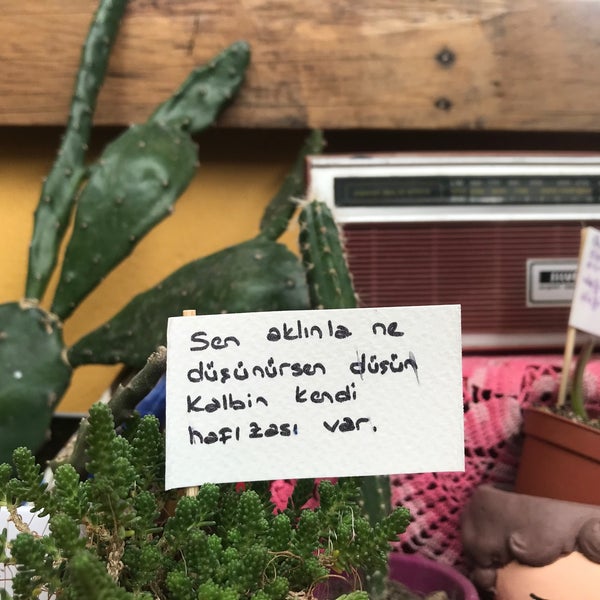 Sen aklınla ne
düşünürsen düşün
Kalbin kendi
hafızası var.